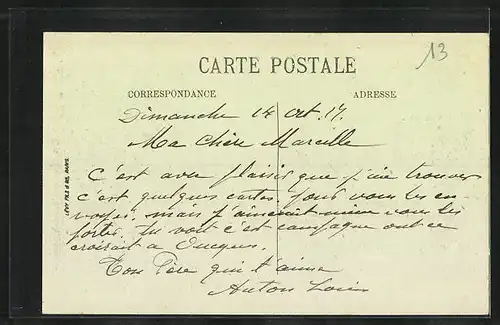 13
CARTE POSTALE
CORRESPONDANCE
ADRESSE
Dimanche 14 Oct. 17.
Ma Chère Marcelle
C'est avec plaisir que j'ai trouver
c'est quelques cartes pour vous les en-
voyer, mais j'aimerait mieux vous les
porter. Tu voit c'est campagne ont ce
croirait a
Ton Père qui t'aime
Anton
LÉVY FILS & CIE, PARIS